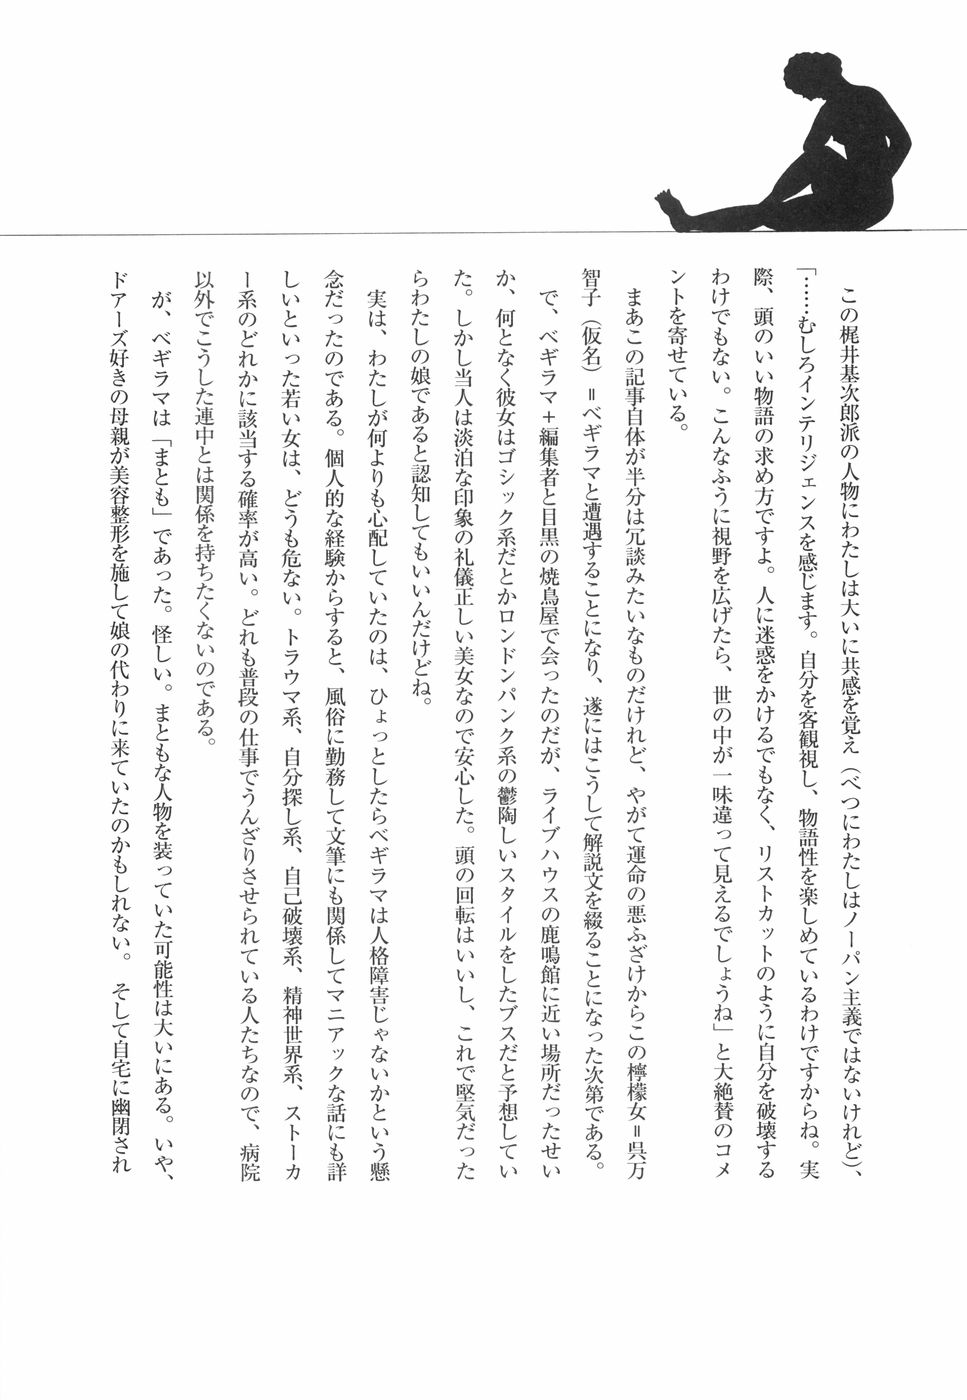 この梶井基次郎派の人物にわたしは大いに共感を覚え（べつにわたしはノーパン主義ではないけれど）、
「……むしろインテリジェンスを感じます。自分を客観視し、物語性を楽しめているわけですからね。実
際、頭のいい物語の求め方ですよ。人に迷惑をかけるでもなく、リストカットのように自分を破壊する
わけでもない。こんなふうに視野を広げたら、世の中が一味違って見えるでしょうね」と大絶賛のコメ
ントを寄せている。
　まあこの記事自体が半分は冗談みたいなものだけれど、やがて運命の悪ふざけからこの檸檬女＝呉万
智子（仮名）＝ベギラマと遭遇することになり、遂にはこうして解説文を綴ることになった次第である。
　で、ベギラマ＋編集者と目黒の焼鳥屋で会ったのだが、ライブハウスの鹿鳴館に近い場所だったせい
か、何となく彼女はゴシック系だとかロンドンパンク系の鬱陶しいスタイルをしたブスだと予想してい
た。しかし当人は淡泊な印象の礼儀正しい美女なので安心した。頭の回転はいいし、これで堅気だった
らわたしの娘であると認知してもいいんだけどね。
　実は、わたしが何よりも心配していたのは、ひょっとしたらベギラマは人格障害じゃないかという懸
念だったのである。個人的な経験からすると、風俗に勤務して文筆にも関係してマニアックな話にも詳
しいといった若い女は、どうも危ない。トラウマ系、自分探し系、自己破壊系、精神世界系、ストーカ
ー系のどれかに該当する確率が高い。どれも普段の仕事でうんざりさせられている人たちなので、病院
以外でこうした連中とは関係を持ちたくないのである。
　が、ベギラマは「まとも」であった。怪しい。まともな人物を装っていた可能性は大いにある。いや、
ドアーズ好きの母親が美容整形を施して娘の代わりに来ていたのかもしれない。　そして自宅に幽閉され